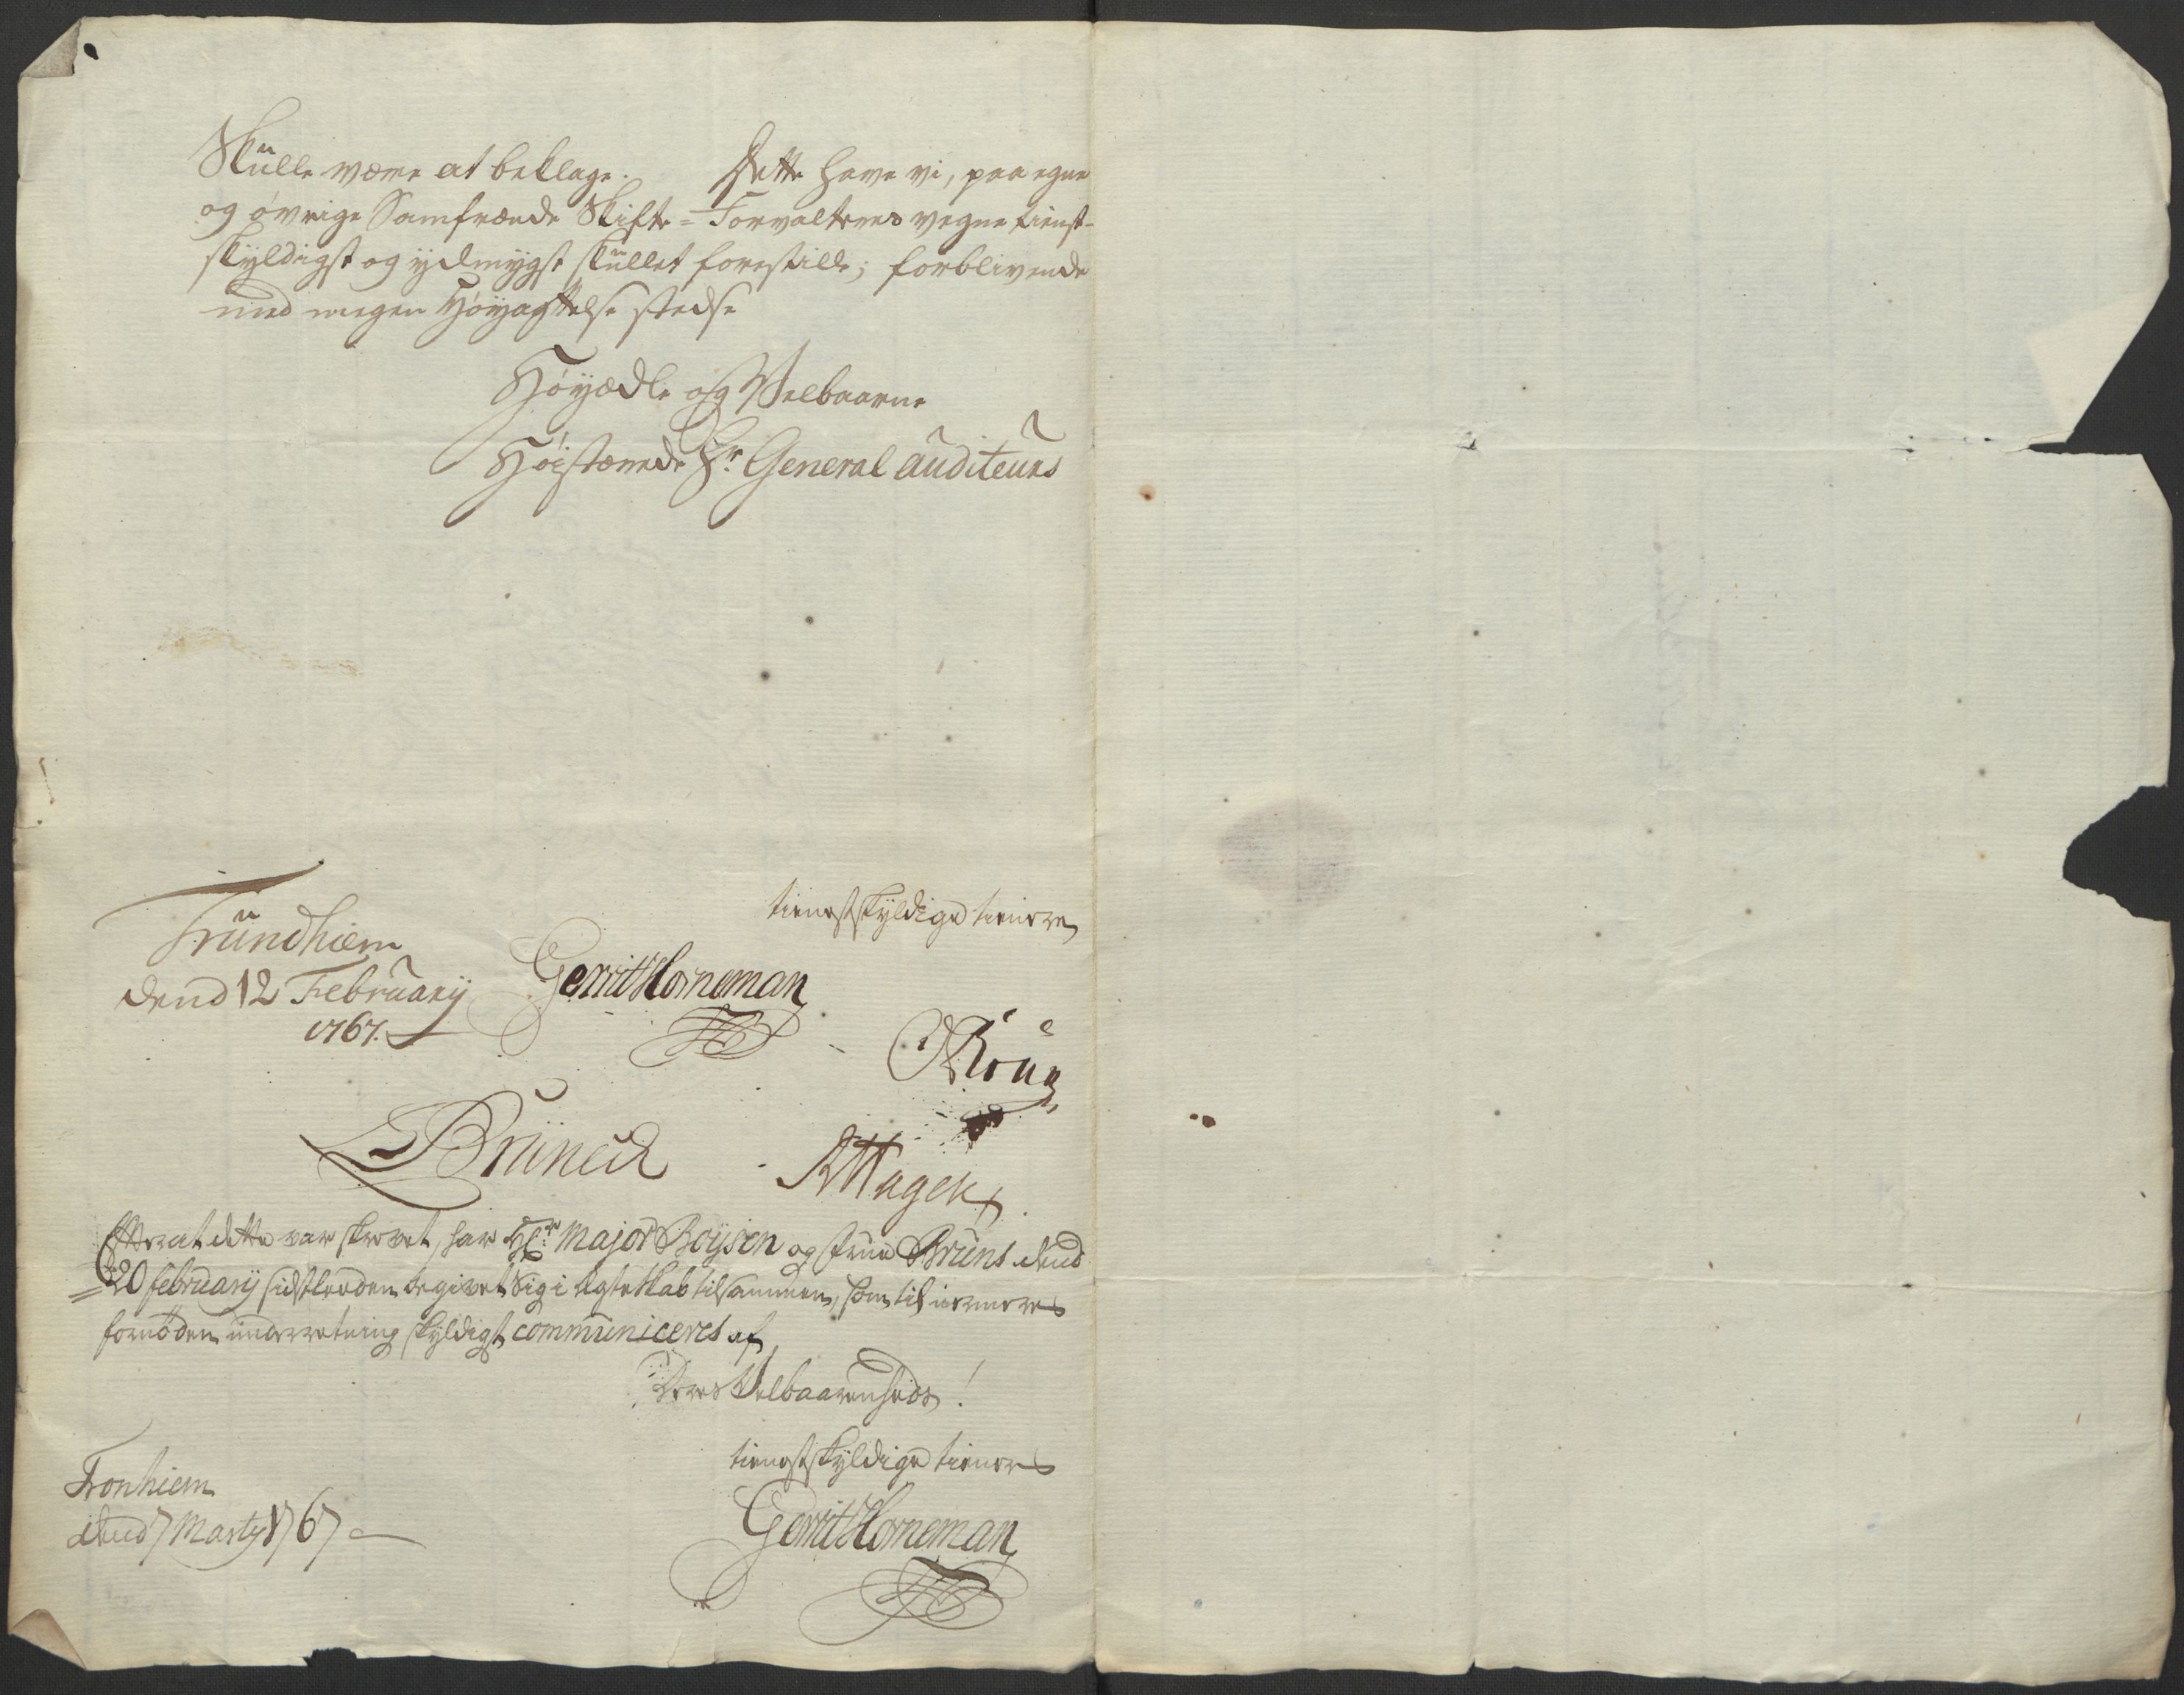 Skulle være at beklage. Dette have vi, paa egne
og øvrige Samfrænde Skifte-Forvalteres vegne tienst-
skyldigst og ydmygst skullet forestille; forblivende
med megen Høyagtelse stedse
Høyædle og Velbaarne
Høistærede Hr General Auditeurs
tienestskyldige tienere
Trundhiem
dend 12 February
1767.
Gerrit Horneman
L Brüned
Efterat dette var skrevet, har Hr Major Boysen og frue Bruns dend
20 february sidstleden begivet Sig i Ægteskab tilsammen, som til nermere
fornøden underretning skyldigst communiceres af
Deres Velbaarenheds!
tienestskyldige tienere
Tronhiem
dend 7 Marty 1767
Gerrit Horneman